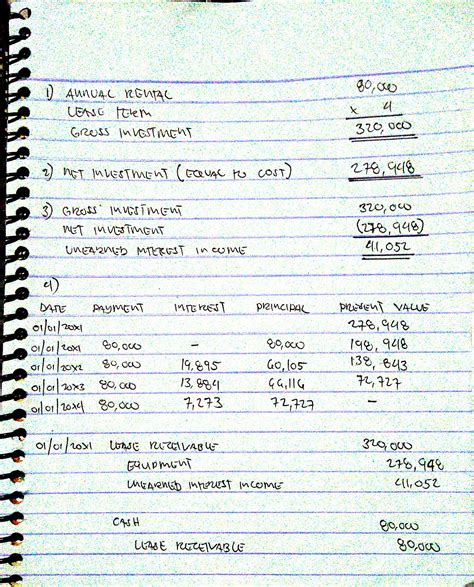 1) ANNUAL RENTAL 80,000
LEASE TERM x 4
GROSS INVESTMENT 320,000
2) NET INVESTMENT (EQUAL TO COST) 278,948
3) GROSS INVESTMENT 320,000
NET INVESTMENT (278,948)
UNEARNED INTEREST INCOME 41,052
4)
DATE PAYMENT INTEREST PRINCIPAL PRESENT VALUE
01/01/20X1 278,948
01/01/20X1 80,000 - 80,000 198,948
01/01/20X2 80,000 19,895 60,105 138,843
01/01/20X3 80,000 13,884 66,116 72,727
01/01/20X4 80,000 7,273 72,727 -
01/01/20X1 LEASE RECEIVABLE 320,000
EQUIPMENT 278,948
UNEARNED INTEREST INCOME 41,052
CASH 80,000
LEASE RECEIVABLE 80,000